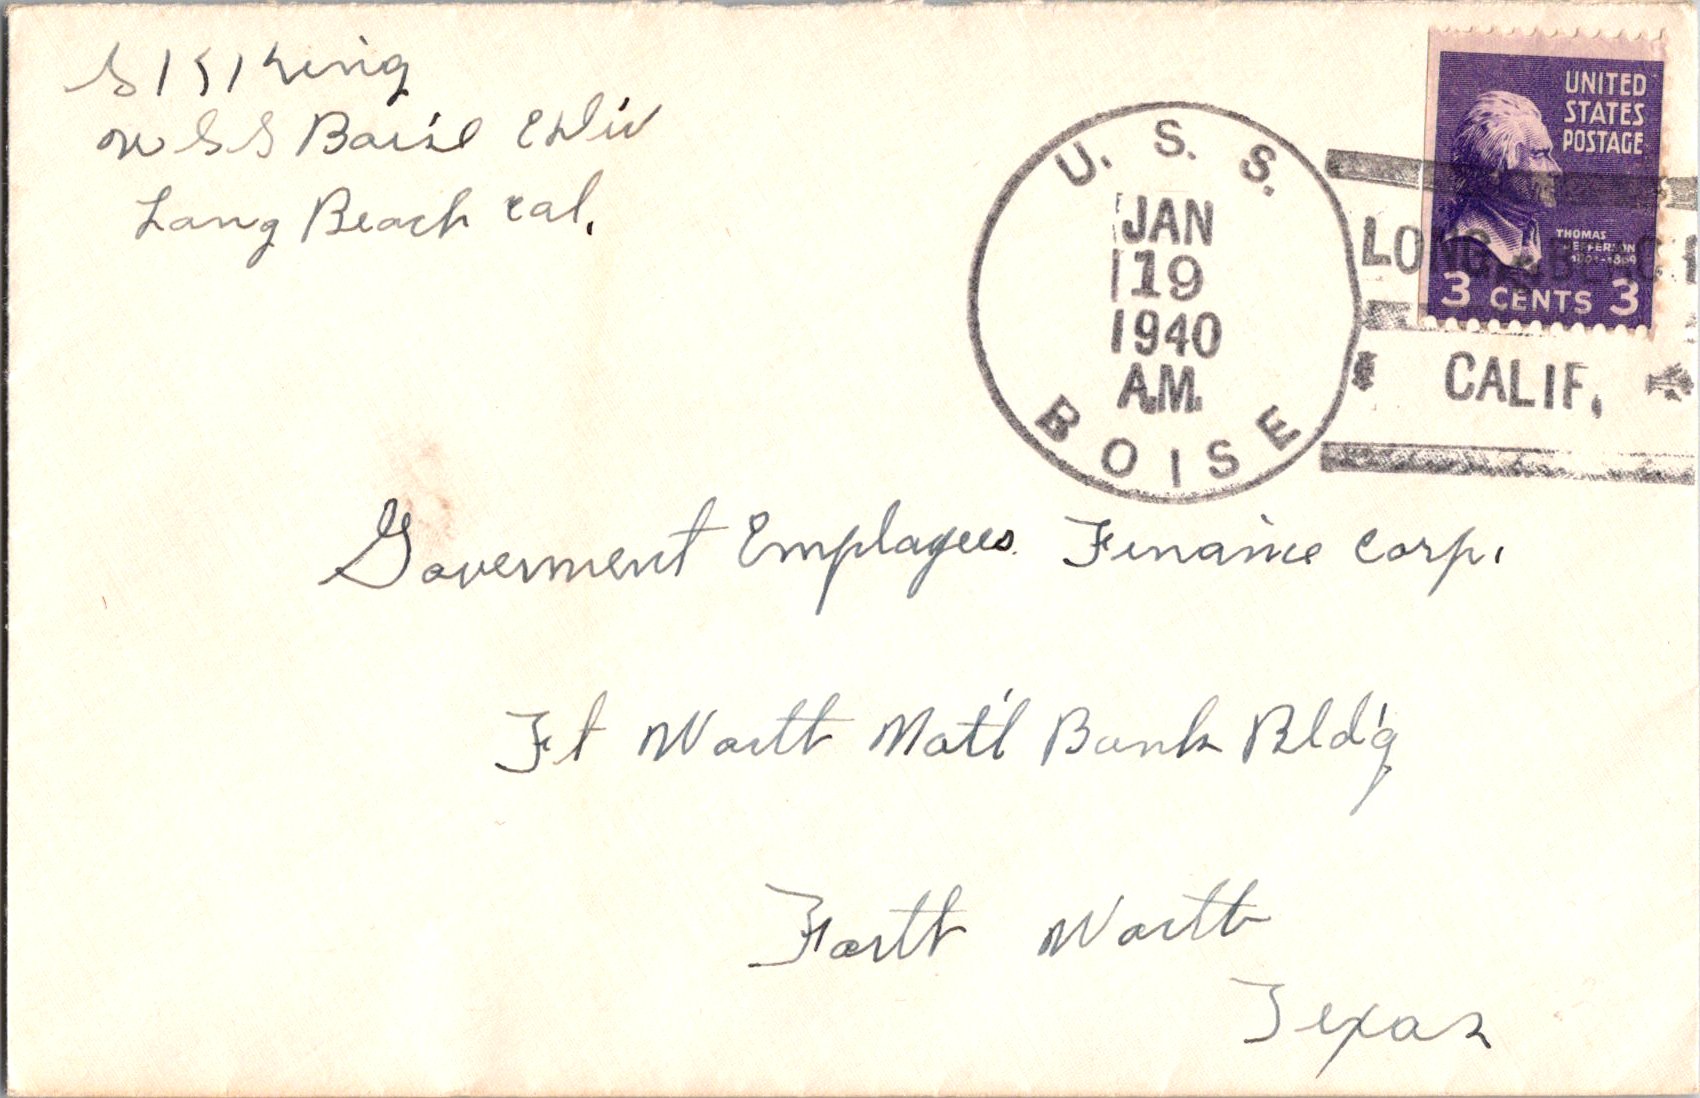 S K King
USS Boise E Div
Long Beach Cal.
U. S. S.
JAN
19
1940
A.M.
BOISE
LONG BEACH
CALIF.
UNITED
STATES
POSTAGE
THOMAS
JEFFERSON
1801-1809
3 CENTS 3
Goverment Employees Finance Corp.
Ft Worth Nat'l Bank Bld'g
Forth Worth
Texas